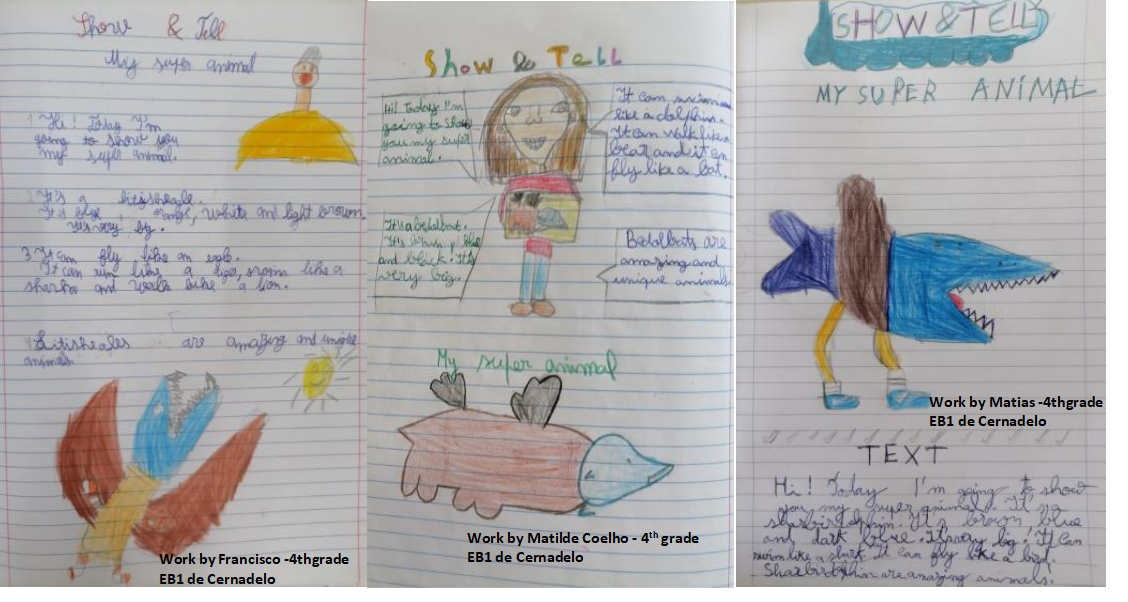 Show & Tell
My super animal
1 Hi! Today I'm
going to show you
my super animal.
2 It's a
It's blue, orange, white and light brown.
It's very big.
3 It can fly like an eagle.
It can run like a tiger, swim like a
shark and walk like a lion.
are amazing and unique
animals.
Work by Francisco -4thgrade
EB1 de Cernadelo
Show & Tell
Hi! Today I'm
going to show
you my super
animal.
It can swim
like a dolphin.
It can walk like a
bear and it can
fly like a bat.
It's a bedolbat.
It's brown, blue
and black. It's
very big.
Bedolbats are
amazing and
unique animals.
My super animal
Work by Matilde Coelho - 4th grade
EB1 de Cernadelo
SHOW & TELL
MY SUPER ANIMAL
Work by Matias -4thgrade
EB1 de Cernadelo
TEXT
Hi! Today I'm going to show
you my super animal. It's a
It's brown blue
and dark blue. It's very big. It can
swim like a shark It can fly like a bird.
are amazing animals.